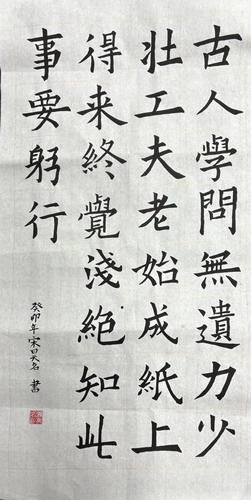 古人學問無遺力少
壯工夫老始成紙上
得来終覺淺絕知此
事要躬行
癸卯年宋昊名 書